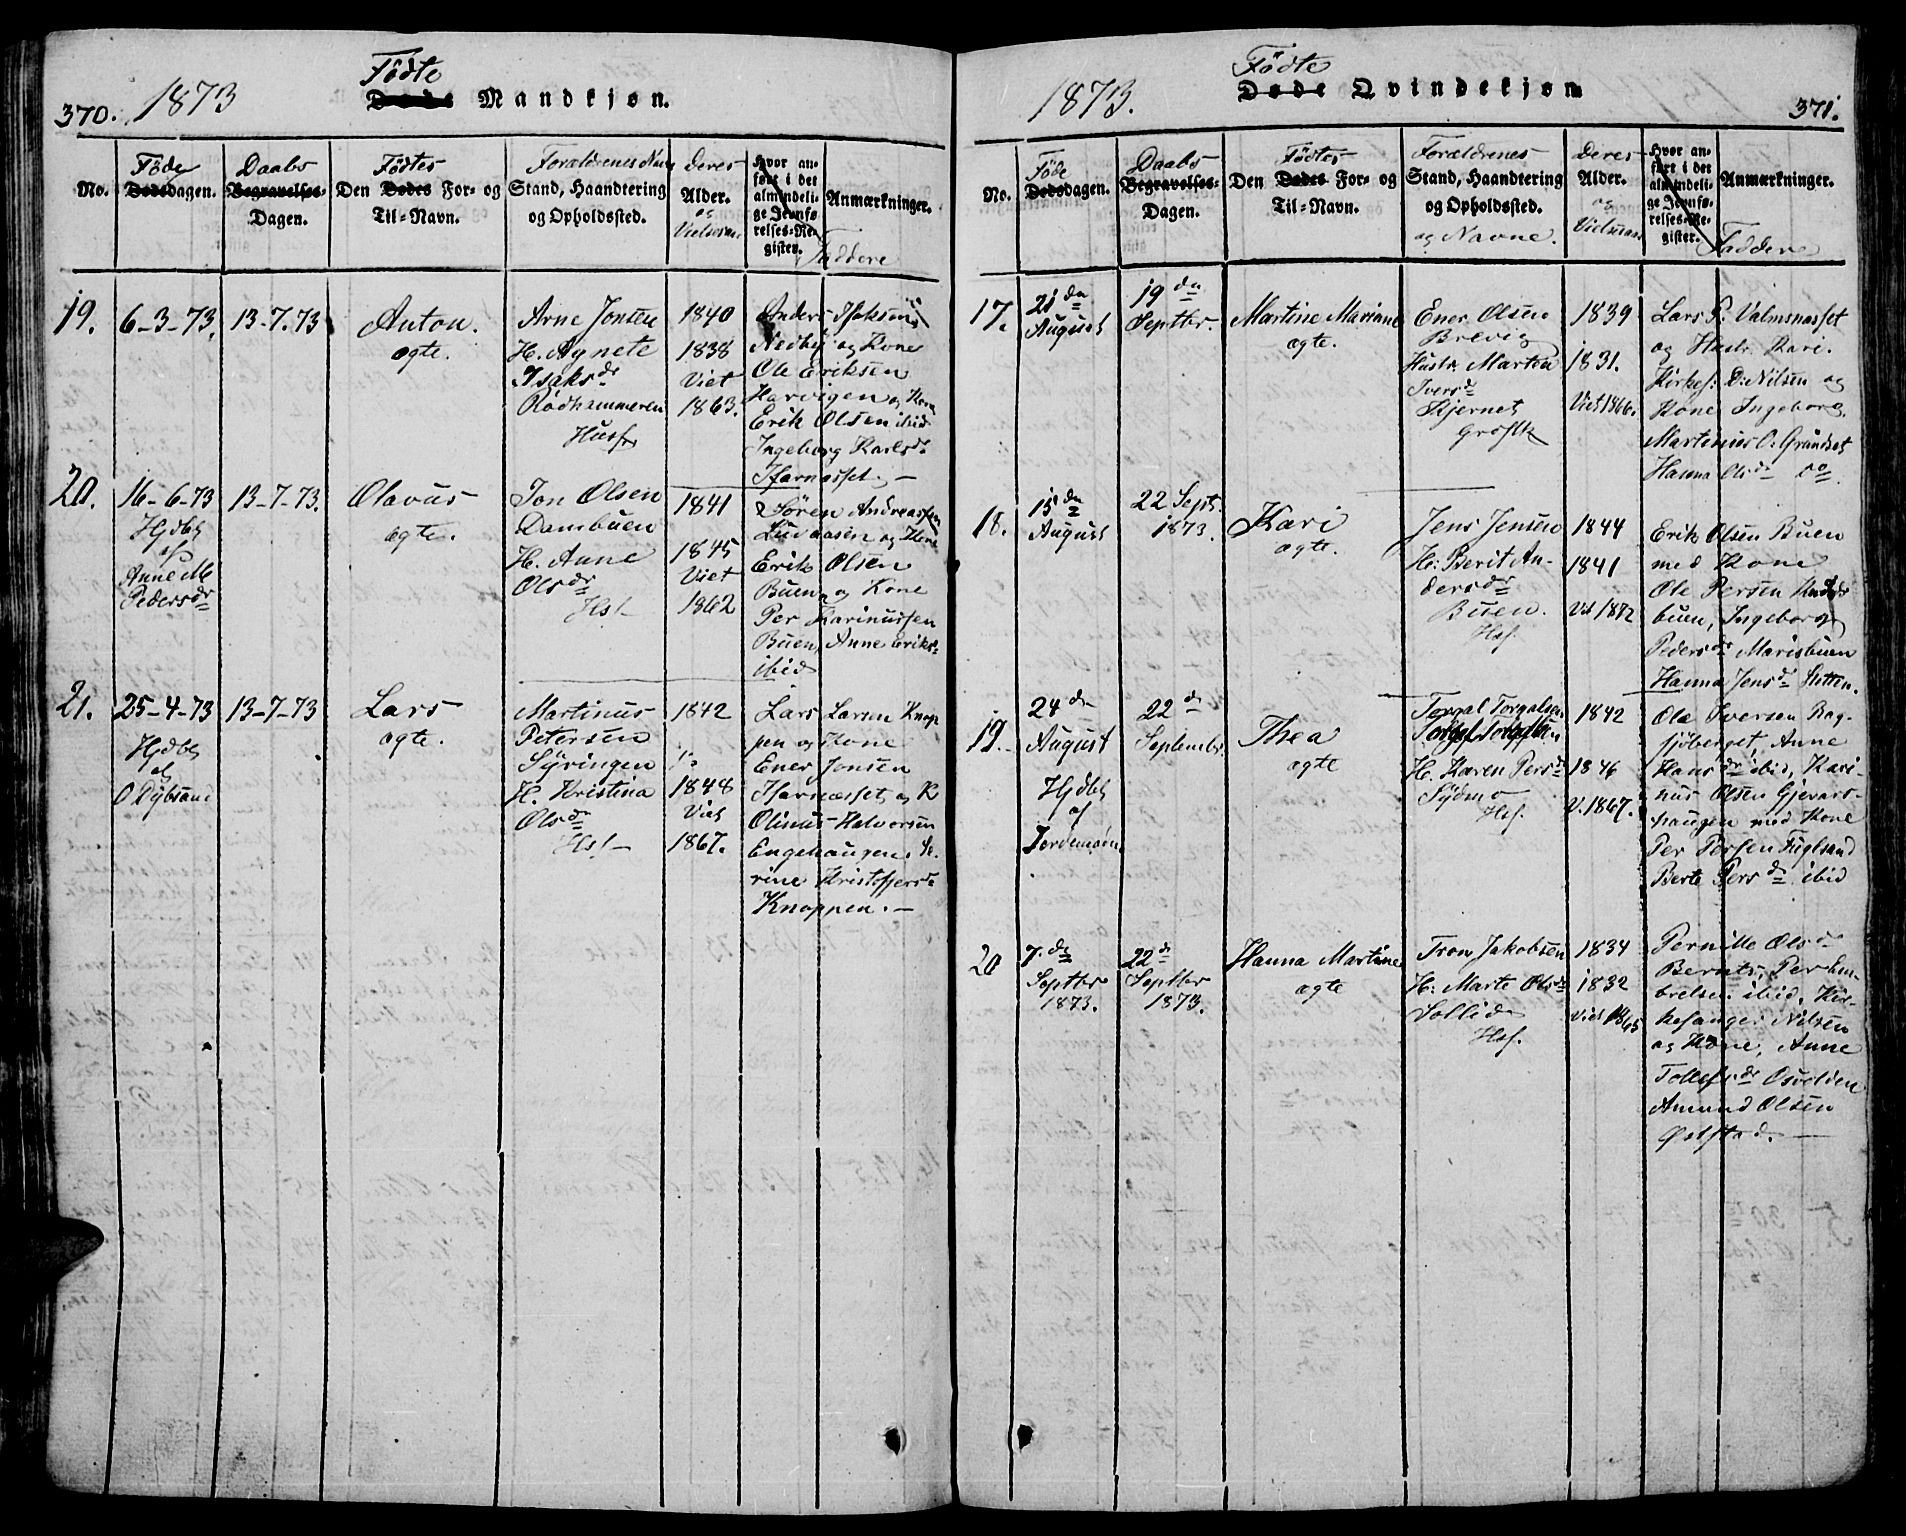 370. 1873 Födte
Døde Mandkjøn.
No.
Föde
Dødsdagen.
Daabs
Begravelses-
Dagen.
Födtes
Den Dødes For- og
Til-Navn.
Forældrenes Navn
Stand, Haandtering
og Opholdssted.
Deres
Alder.
og
Vielsesaar
Hvor an-
ført i det
almindeli-
ge Jevnfø-
relses-Re-
gister.
Anmærkninger.
Faddere
19. 6-3-73. 13-7.73
Anton.
ægte.
Arne Jonsen
H. Agnete
Isaksdr
Rödhammeren
Husf
1840
1838
Viet
1863.
Anders Isaksen
Nedby og Kone
Ole Eriksen
Harvigen og Kone
Erik Olsen ibid
Ingeborg Karlsdr
20. 16-6-73 13-7-73.
Hjdbt
af
Anne M
Pedersdr
Olavus
ægte.
Jon Olsen
Dambuen
H. Anne
Olsdr
Hsf
1841
1845
Viet
1862
Søren Andreassen
og Kone
Erik Olsen
Buen og Kone
Per Karinussen
Buen, Anne Eriks-
ibid
21. 25-4-73 13-7-73
Hjdbt
af
Lars
ægte.
Martinus
Petersen
Syringen
H. Kristina
Olsdr
Hsf
1842
1848
Viet
1867.
Lars Larsen Knop
pen og Kone
Ener Jonsen
og K
Olinus Halvorsen
Engehaugen. Se-
rine Kristofersdr
Knoppen.
1873. Födte
Døde Qvindekjøn 371.
No.
Föde
Dødsdagen.
Daabs
Begravelses-
Dagen.
Födtes
Den Dødes For- og
Til-Navn.
Forældrenes
Stand, Haandtering
og Opholdssted.
og Navne.
Deres
Alder.
og
Vielsesaar
Hvor an-
ført i det
almindeli-
ge Jevnfø-
relses-Re-
gister.
Anmærkninger.
Faddere
17. 21de
August
19de
Septbr.
Martine Mariane
ægte.
Ener Olsen
Brevig
Hustr. Marten
Iversd
Kjernet
1839
1831.
Viet 1866.
Lars P. Valmsnæsset
og Hustr. Kari.
Kirkes: D: Nilsen og
Kone Ingeborg.
Martinius O: Grindset
Hanna Olsdr do.
18. 15de
August
22 Sept.
1873.
Kari
ægte.
Jens Jensen
H: Berit An-
dersdr
Buen.
Hsf.
1844
1841
Vit 1872
Erik Olsen Buen
med Kone
Ole Persen
buen, Ingeborg
Pedersdr Marisbuen
Hanna Jensdr
19. 24de
August
Hjdbt
af
Jordemoren
22de
Septembr
Thea
ægte
Torgal Torgalsen
H. Karen Persdr
Sydmo
Hsf.
1842
1846
V. 1867.
Ole Iversen Bag-
sjöberget, Anne
Hansdr ibid, Kari-
nus Olsen Gjevars-
haugen med Kone
Per Persen Fuglsand
Berte Persdr ibid
20 7.de
Septbr
1873.
22de
Septbr
1873.
Hanna Martine
ægte
Tron Jakobsen
H: Marte Olsdr
Sollid
Hsf.
1834
1832
Viet 1865
Pernille Olsdr
Bernts, Per Em-
bretsen ibid, Kir-
kesanger Nilsen
og Kone, Anne
Tollefsdr Osvolden
Amund Olsen
Øststad.